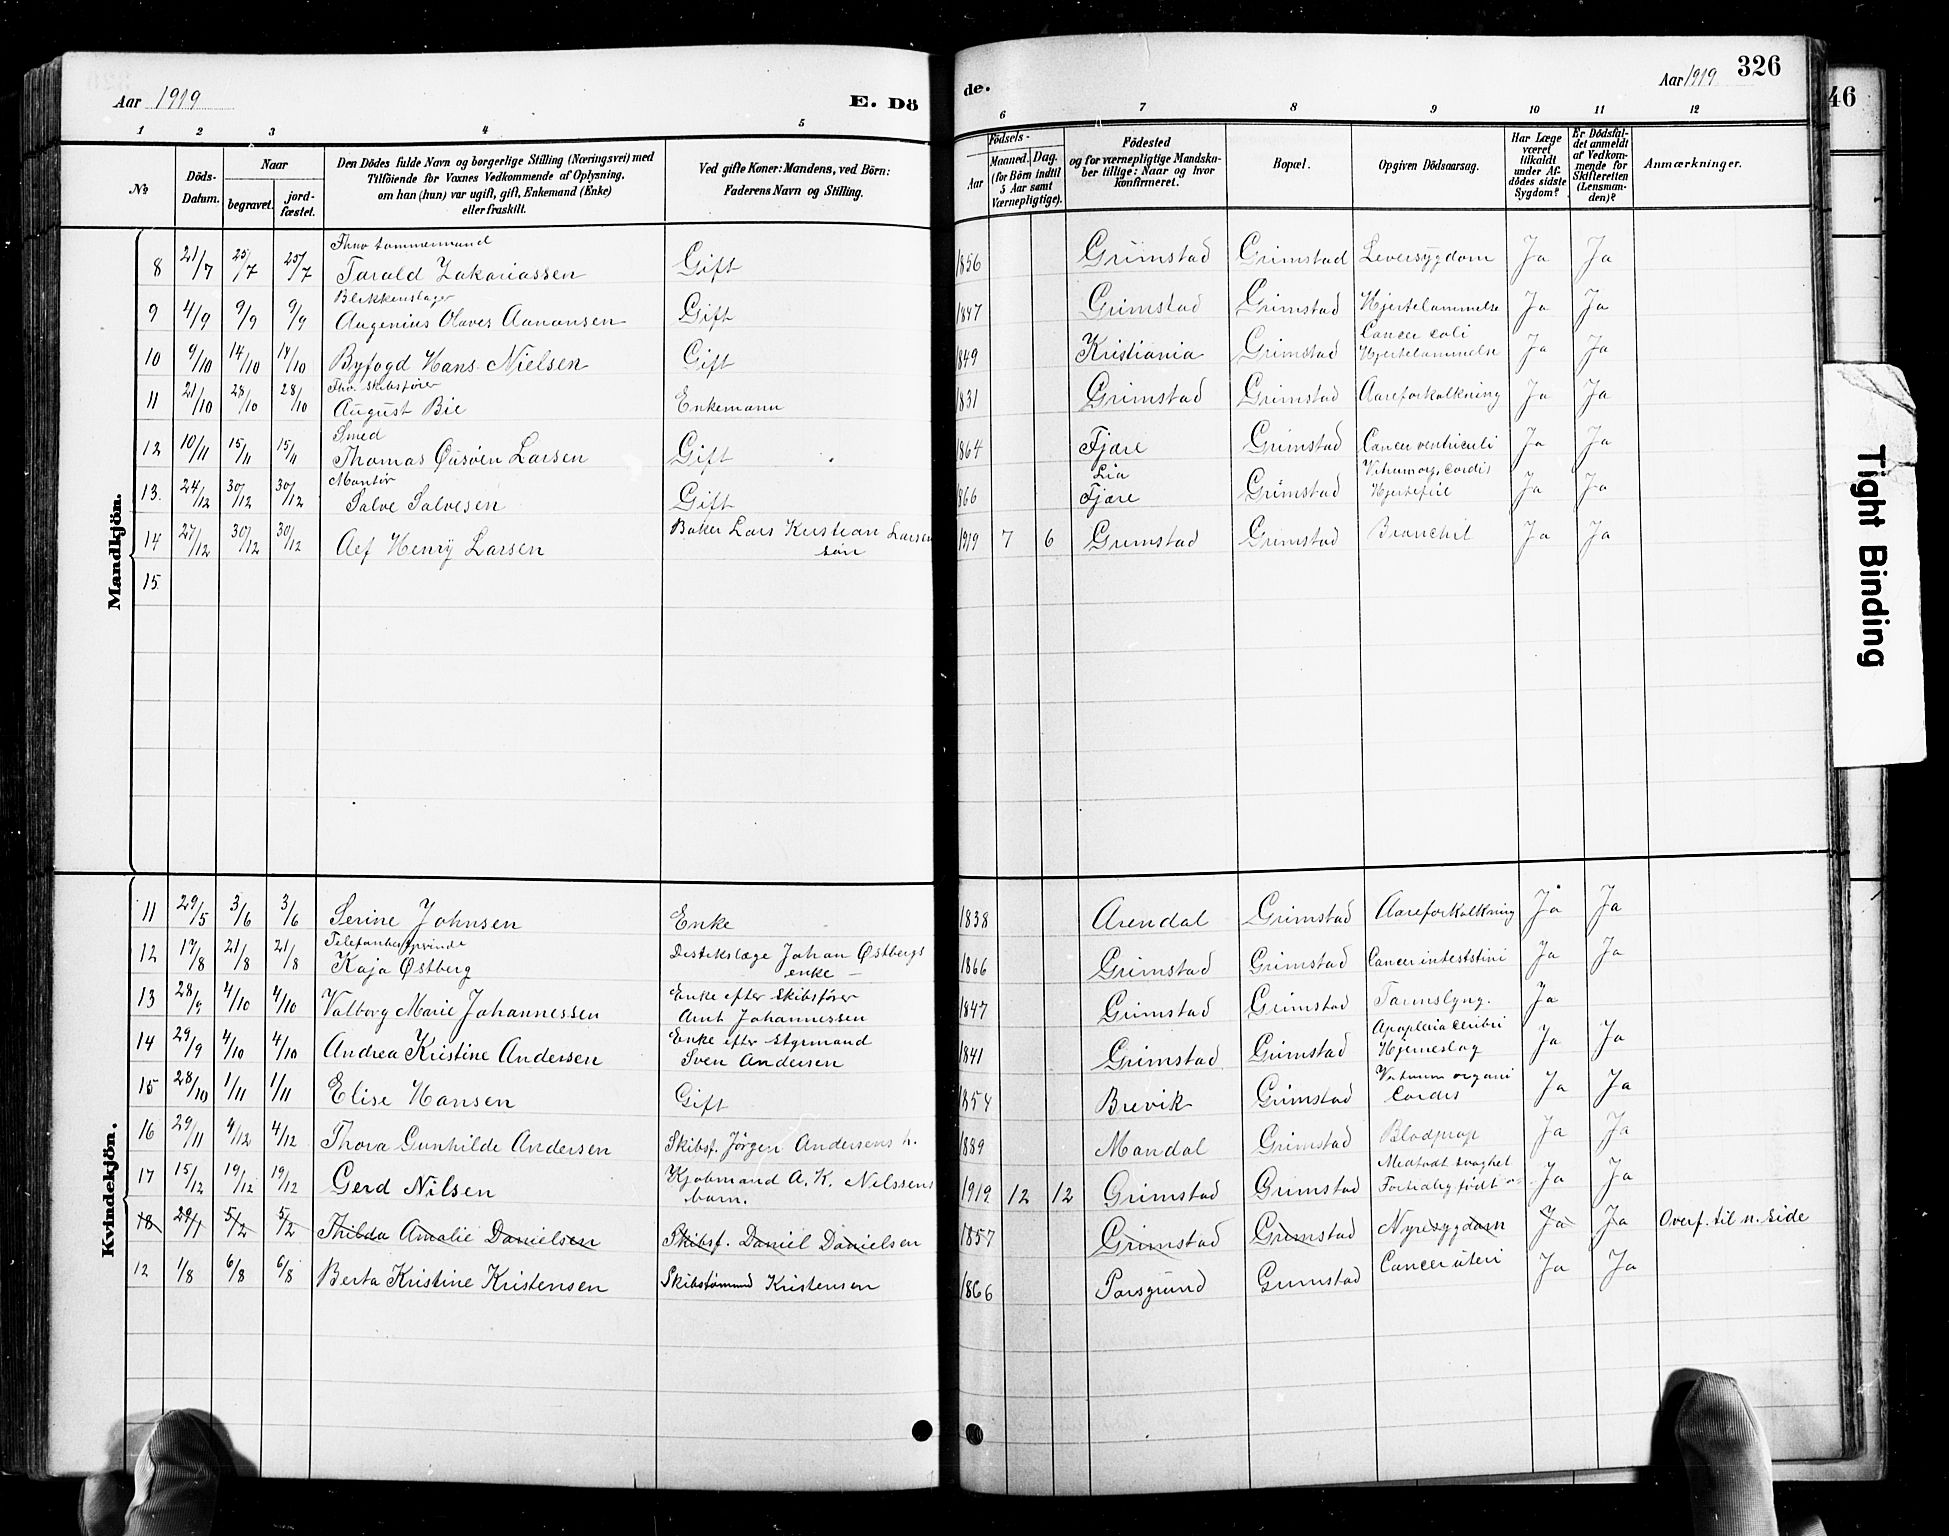 Aar 1919
E. Dö
de.
Aar 1919
326
46
1 2 3 4 5 6 7 8 9 10 11 12
№
Döds-Datum.
Naar
begravet.
jord-fæstet.
Den Dödes fulde Navn og borgerlige Stilling (Næringsvei) med
Tilföiende for Voxnes Vedkommende af Oplysning,
om han (hun) var ugift, gift, Enkemand (Enke)
eller fraskilt.
Ved gifte Koner: Mandens, ved Börn:
Faderens Navn og Stilling.
Födsels-
Aar
Maaned. Dag.
(for Börn indtil
5 Aar samt
Værnepligtige).
Födested
og for værnepligtige Mandska-
ber tillige: Naar og hvor
konfirmeret.
Bopæl.
Opgiven Dödsaarsag.
Har Læge
været
tilkaldt
under Af-
dödes sidste
Sygdom?
Er Dödsfal-
det anmeldt
af Vedkom-
mende for
Skifteretten
(Lensman-
den)?
Anmærkninger.
Mandkjön.
8 21/7 25/7 25/7 Fhv tømmermand
Tarald Zakariassen Gift 1856 Grimstad Grimstad Leversygdom Ja Ja
Blikkenslager
9 4/9 9/9 9/9 Augenius Olaves Aanonsen Gift 1847 Grimstad Grimstad Hjertelammelse Ja Ja
Cancer coli
10 9/10 14/10 14/10 Byfogd Hans Nielsen Gift 1849 Kristiania Grimstad Hjertelammelse Ja Ja
Fhv. skibsfører
11 21/10 28/10 28/10 August Bie Enkemann 1831 Grimstad Grimstad Aareforkalkning Ja Ja
Smed
12 10/11 15/11 15/11 Thomas Larsen Gift 1864 Fjære Grimstad Cancer ventriculi Ja Ja
Montør Lia cordis
13. 24/12 30/12 30/12 Salve Salvesen Gift 1866 Fjære Grimstad Hjertefeil Ja Ja
14 27/12 30/12 30/12 Henry Larsen Baker Lars Kristian Larsen
søn 1919 7 6 Grimstad Grimstad Bronchit Ja Ja
15.
Kvindekjön.
11 29/5 3/6 3/6 Serine Johnsen Enke 1838 Arendal Grimstad Aareforkalkning Ja Ja
12 17/8 21/8 21/8 Kaja Østberg Distrikslæge Johan Østbergs
enke 1866 Grimstad Grimstad Cancer inteststini Ja Ja
13 28/9 4/10 4/10 Valborg Marie Johannessen Enke efter Skibsfører
Arnt Johannessen 1847 Grimstad Grimstad Tarmslyng. Ja
14 29/9 4/10 4/10 Andrea Kristine Andersen Enke efter Styrmand
Sven Andersen 1841 Grimstad Grimstad Apoplexia ceribri
Hjerneslag Ja Ja
15 28/10 1/11 1/11 Elise Hansen Gift 1854 Brevik Grimstad organi
Cordis Ja Ja
16 29/11 4/12 4/12 Thora Gunhilde Andersen Skibsf. Jørgen Andersens h. 1889 Mandal Grimstad Blodprop Ja Ja
17 15/12 19/12 19/12 Gerd Nilsen Kjøbmand A. K. Nilssens
barn. 1919 12 12 Grimstad Grimstad Medfødt svaghet
Fortidlig født Ja Ja
18 29/1 5/2 5/2 Thilda Amalie Danielsen Skibsf. Daniel Danielsen 1857 Grimstad Grimstad Nyresygdom Ja Ja Overf. til n. side
12 1/8 6/8 6/8 Berta Kristine Kristensen Skibstømmd Kristensen 1866 Porsgrund Grimstad Cancer uteri Ja Ja
Tight Binding